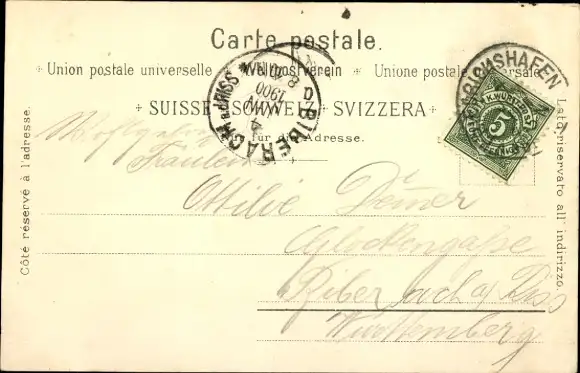 Carte postale.
Union postale universelle Weltpostverein Unione postale
SUISSE SCHWEIZ SVIZZERA
für die Adresse.
Côté réservé à l'adresse.
Lato riservato all'indirizzo.
BIBERACH a.d. RISS
4 JUN
1900
K. WÜRTTEMB.
5
Fräulein
Ottilie
Glockengasse
Biberach a/ Riss
Württemberg